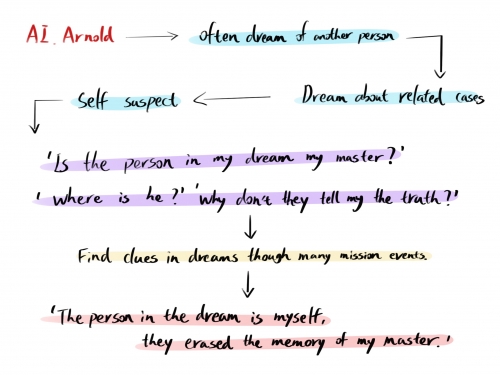 AI. Arnold
often dream of another person
Self suspect
Dream about related cases
'Is the person in my dream my master?'
'where is he?' 'Why don't they tell my the truth?'
Find clues in dreams though many mission events.
'The person in the dream is myself,
they erased the memory of my master.'